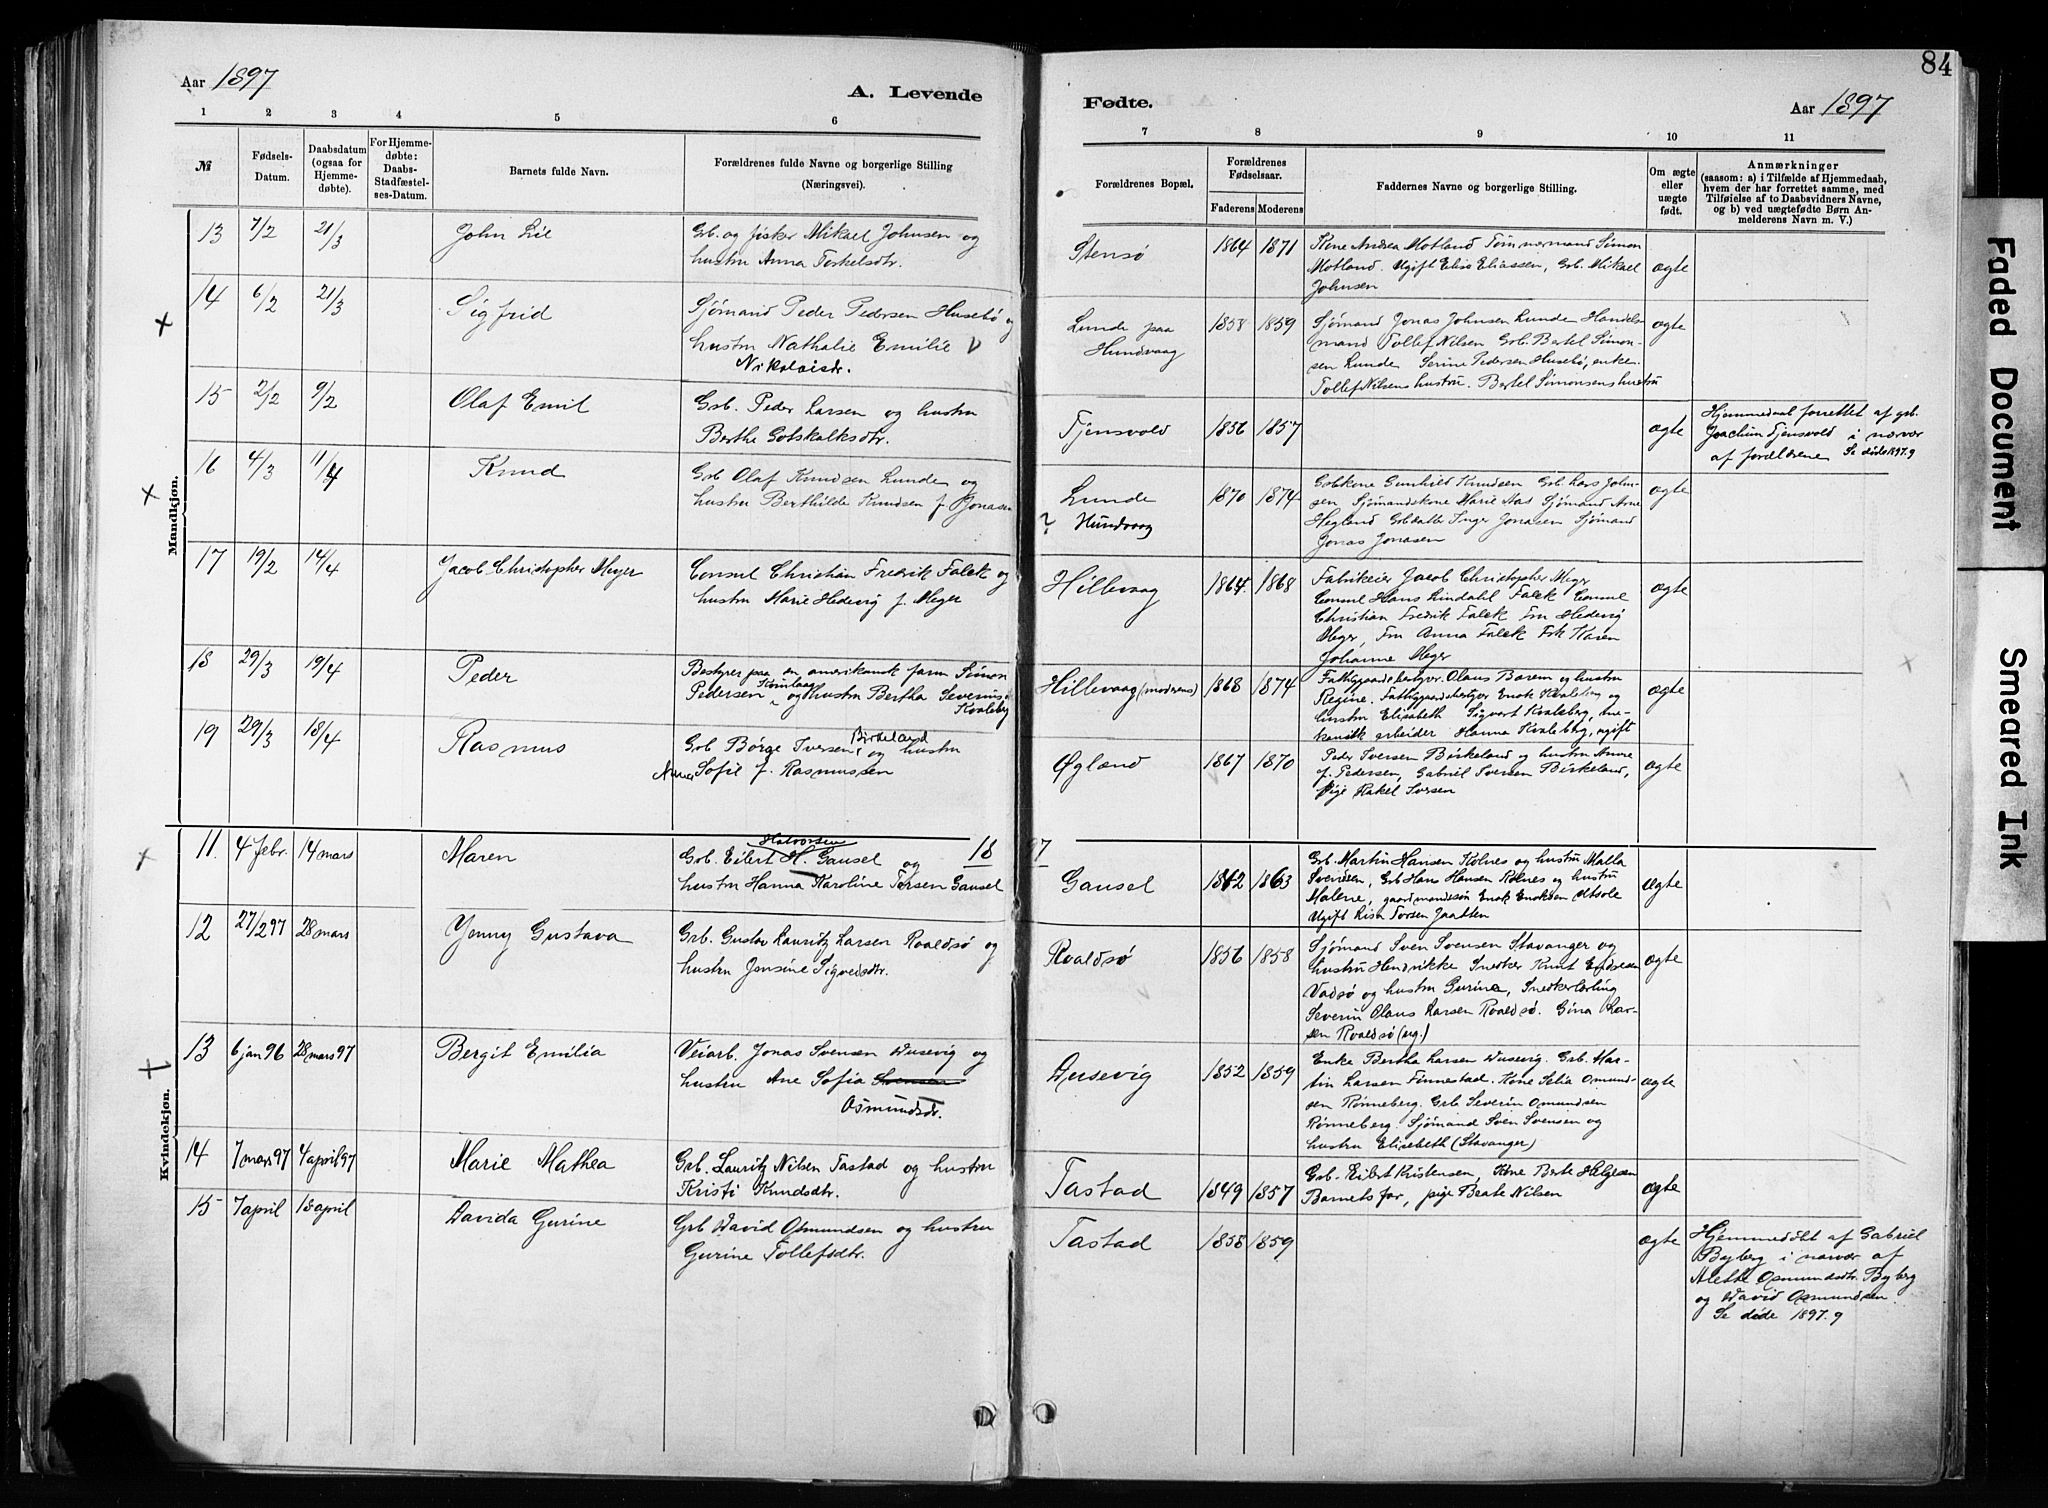 84
Aar 1897
A. Levende
Fødte.
Aar 1897
1 2 3 4 5 6 7 8 9 10 11
№
Fødsels-Datum.
Daabsdatum (ogsaa for Hjemmedøbte).
For Hjemmedøbte: Daabs-Stadfæstelses-Datum.
Barnets fulde Navn.
Forældrenes fulde Navne og borgerlige Stilling
(Næringsvei).
Forældrenes Bopæl.
Forældrenes Fødselsaar.
Faderens Moderens
Faddernes Navne og borgerlige Stilling.
Om ægte eller uægte født.
Anmærkninger
(saasom: a) i Tilfælde af Hjemmedaab,
hvem der har forrettet samme, med
Tilføielse af to Daabsvidners Navne,
og b) ved uægtefødte Børn Anmelderens Navn m. V.)
Mandkjøn.
13 7/2 21/3 John Lie
Grb. og fisker Mikael Johnsen og
hustru Anna Torkelsdtr.
Stensø 1864 1871
Kone Andrea Motland Tømmermand Simon
Motland. Ugift Elisa Eliassen, Grb. Mikael
Johnsen
ægte
14 6/2 21/3 Sigfrid
Sjømand Peder Pedersen Husebø og
hustru Nathalie Emilie
Nikolaisdr.
Lunde paa
Hundvaag
1858 1859
Sjømand Jonas Johnsen Lunde Handels
mand Tollef Nilsen Grb. Batel Simon-
sen Lunde Serine Pedersen Husebø, enke.
Tollef Nilsens hustru. Bertel Simonsens hustru
ægte
15 2/2 9/2 Olaf Emil
Grb. Peder Larsen og hustru
Berthe Gotskalksdtr.
Tjensvold 1856 1857
ægte
Hjemmedaab forrettet af grb.
Joachim Tjensvold i nærvær
af forældrene Se døde 1897.9
16 4/3 11/4 Knud
Grb Olaf Knudsen Lunde og
hustru Berthilde Knudsen f. Jonasen
Lunde
? Hundvaag
1870 1874
Gbkone Gunhild Knudsen Grb. Lars John-
sen Sjømandskone Marie Aas Sjømand Arne
Hegland Grbdatter Inger Jonasen Sjømand
Jonas Jonasen
ægte
17 19/2 14/4 Jacob Christopher Meyer
Consul Christian Fredrik Falck og
hustru Marie Hedevig f. Meyer
Hillevaag 1864. 1868
Fabrikeier Jacob Christopher Meyer
Consul Hans Lindahl Falck Consul
Christian Fredrik Falck Fru Hedevig
Meyer, Fru Anna Falck Frk Karen
Johanne Meyer
ægte
18 29/3 19/4 Peder
Bestyrer paa en amerikansk farm Simon
Pedersen og hustru Bertha Severins
Kvaleberg
Hillevaag (moderens) 1868 1874
Fattiggaardsbestyrer Olaus Barem og hustru
Regine. Fattiggaardsbestyrer Enok Kvaleberg og
hustru Elisabeth Sigvart Kvaleberg, me-
kanisk arbeider Hanna Kvaleberg, ugift
ægte
19 29/3 18/4 Rasmus
Grb Børge Iversen Birkeland og hustru
Anne Sofie f. Rasmussen
Øgland 1867 1870
Peder Iversen Birkeland og hustru Anne
f. Pedersen, Gabriel Iversen Birkeland,
Pige Rakel Iversen
ægte
18 97
Kvindekjøn.
11. 4 febr. 14 mars Maren
Halvorsen
Grb. Eilert H. Gausel og
hustru Hanna Karoline Torsen Gausel
Gausel 1862 1863
Grb. Martin Hansen Kolnes og hustru Malla
Svendsen, Grb Hans Hansen Kolnes og hustru
Malene, gaardmandssøn Enok Enoksen Utsole
Ugift Lisa Torsen Jaatten
ægte
12 27/2 97 28 mars Yenny Gustava
Grb. Gustav Lauritz Larsen Roaldsø og
hustru Jensine Sigveisdtr.
Roaldsø 1856 1858
Sjømand Sven Svensen Stavanger og
hustru Hendrikke Snedker Knut Endresen
Vadsø og hustru Gurine, Snedkerlærling
Severin Olaus Larsen Roaldsø. Gina Lar-
sen Roaldsø (ug.)
ægte
13 6 jan 96 28 mars 97 Bergit Emilia
Veiarb. Jonas Svensen Dusevig og
hustru Ane Sofia Svensen
Osmundsdr.
Dusevig 1852 1859
Enke Bertha Larsen Dusevig. Grb. Mar-
tin Larsen Finnestad. Kone Selia Osmund-
sen Rønneberg. Grb Severin Osmundsen
Rønneberg. Sjømand Sven Svensen og
hustru Elisebeth (Stavanger)
ægte
14 7 mars 97 4 april 97 Marie Mathea
Grb. Lauritz Nilsen Tastad og hustru
Kristi Knudsdtr.
Tastad 1849 1857
Grb. Eilert Kristensen, Kone Berte Helgesen
Barnets far, pige Beate Nilsen
ægte
15 7 april 18 april Davida Gurine
Grb David Osmundsen og hustru
Gurine Tollefsdtr.
Tastad 1858 1859
ægte
Hjemmedøbt af Gabriel
Byberg i nærvær af
Alette Osmundsdtr. Byberg
og David Osmundsen
Se døde 1897.9
Faded Document
Smeared Ink